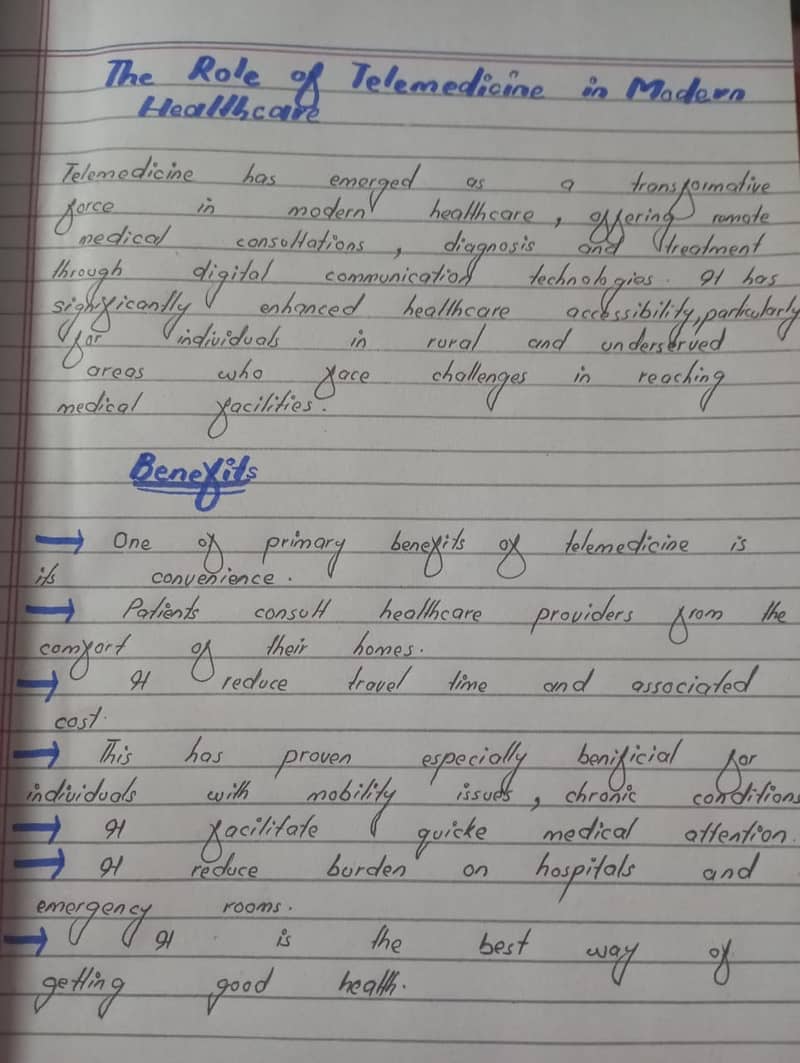 The Role of Telemedicine in Modern
Healthcare
Telemedicine has emerged as a transformative
force in modern healthcare, offering remote
medical consultations, diagnosis and treatment
through digital communication technologies. It has
significantly enhanced healthcare accessibility, particularly
for individuals in rural and underserved
areas who face challenges in reaching
medical facilities.
Benefits
→ One of primary benefits of telemedicine is
its convenience.
→ Patients consult healthcare providers from the
comfort of their homes.
→ It reduce travel time and associated
cost.
→ This has proven especially benificial for
individuals with mobility issues, chronic conditions
→ It facilitate quicke medical attention.
→ It reduce burden on hospitals and
emergency rooms.
→ It is the best way of
getting good health.